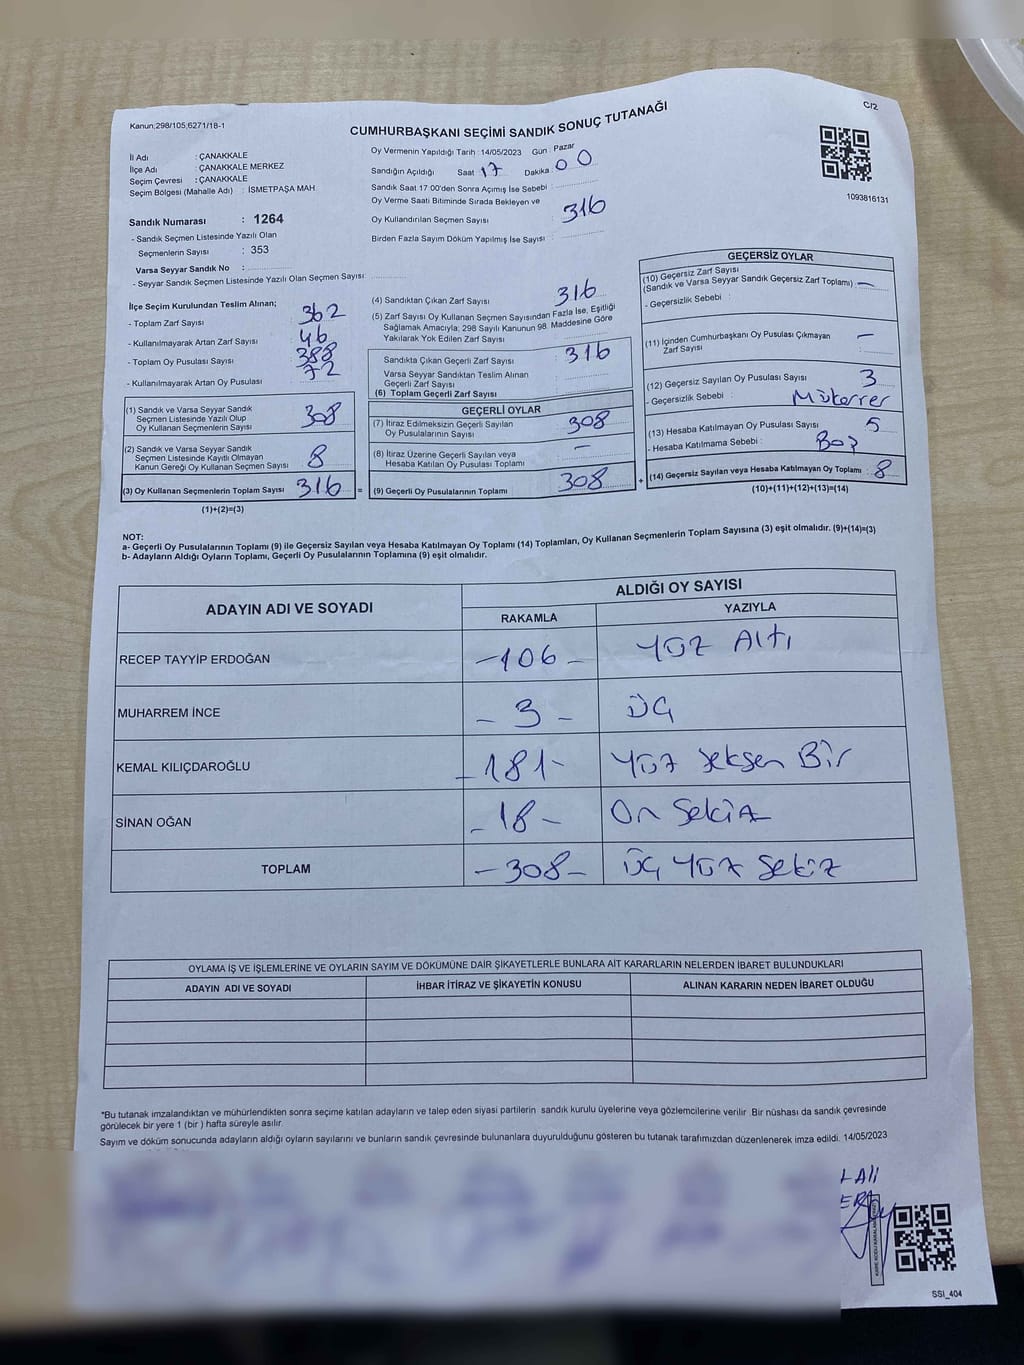 Kanun;298/105;6271/18-1
C/2
CUMHURBAŞKANI SEÇİMİ SANDIK SONUÇ TUTANAĞI
İl Adı : ÇANAKKALE
İlçe Adı : ÇANAKKALE MERKEZ
Seçim Çevresi : ÇANAKKALE
Seçim Bölgesi (Mahalle Adı) : İSMETPAŞA MAH.
Sandık Numarası : 1264
- Sandık Seçmen Listesinde Yazılı Olan
Seçmenlerin Sayısı : 353
Varsa Seyyar Sandık No :
- Seyyar Sandık Seçmen Listesinde Yazılı Olan Seçmen Sayısı
Oy Vermenin Yapıldığı Tarih : 14/05/2023 Gün : Pazar
Sandığın Açıldığı Saat 17 Dakika 00
Sandık Saat 17:00'den Sonra Açımış İse Sebebi :
Oy Verme Saati Bitiminde Sırada Bekleyen ve
Oy Kullandırılan Seçmen Sayısı 316
Birden Fazla Sayım Döküm Yapılmış İse Sayısı :
1093816131
İlçe Seçim Kurulundan Teslim Alınan;
- Toplam Zarf Sayısı : 362
- Kullanılmayarak Artan Zarf Sayısı : 46
- Toplam Oy Pusulası Sayısı : 388
- Kullanılmayarak Artan Oy Pusulası : 72
(1) Sandık ve Varsa Seyyar Sandık
Seçmen Listesinde Yazılı Olup
Oy Kullanan Seçmenlerin Sayısı 308
(2) Sandık ve Varsa Seyyar Sandık
Seçmen Listesinde Kayıtlı Olmayan
Kanun Gereği Oy Kullanan Seçmen Sayısı 8
(3) Oy Kullanan Seçmenlerin Toplam Sayısı 316 =
(1)+(2)=(3)
(4) Sandıktan Çıkan Zarf Sayısı 316
(5) Zarf Sayısı Oy Kullanan Seçmen Sayısından Fazla İse, Eşitliği
Sağlamak Amacıyla; 298 Sayılı Kanunun 98. Maddesine Göre
Yakılarak Yok Edilen Zarf Sayısı
Sandıkta Çıkan Geçerli Zarf Sayısı 316
Varsa Seyyar Sandıktan Teslim Alınan
Geçerli Zarf Sayısı
(6) Toplam Geçerli Zarf Sayısı
GEÇERLİ OYLAR
(7) İtiraz Edilmeksizin Geçerli Sayılan
Oy Pusulalarının Sayısı 308
(8) İtiraz Üzerine Geçerli Sayılan veya
Hesaba Katılan Oy Pusulası Toplamı –
(9) Geçerli Oy Pusulalarının Toplamı 308 +
GEÇERSİZ OYLAR
(10) Geçersiz Zarf Sayısı
(Sandık ve Varsa Seyyar Sandık Geçersiz Zarf Toplamı) : –
- Geçersizlik Sebebi :
(11) İçinden Cumhurbaşkanı Oy Pusulası Çıkmayan –
Zarf Sayısı :
(12) Geçersiz Sayılan Oy Pusulası Sayısı : 3
- Geçersizlik Sebebi : Mükerrer
(13) Hesaba Katılmayan Oy Pusulası Sayısı : 5
- Hesaba Katılmama Sebebi : Boş
(14) Geçersiz Sayılan veya Hesaba Katılmayan Oy Toplamı : 8
(10)+(11)+(12)+(13)=(14)
NOT:
a- Geçerli Oy Pusulalarının Toplamı (9) ile Geçersiz Sayılan veya Hesaba Katılmayan Oy Toplamı (14) Toplamları, Oy Kullanan Seçmenlerin Toplam Sayısına (3) eşit olmalıdır. (9)+(14)=(3)
b- Adayların Aldığı Oyların Toplamı, Geçerli Oy Pusulalarının Toplamına (9) eşit olmalıdır.
ADAYIN ADI VE SOYADI
ALDIĞI OY SAYISI
RAKAMLA YAZIYLA
RECEP TAYYİP ERDOĞAN –106– YÜZ Altı
MUHARREM İNCE – 3 – ÜÇ
KEMAL KILIÇDAROĞLU –181– YÜZ Seksen Bir
SİNAN OĞAN –18– On Sekiz
TOPLAM –308– ÜÇ YÜZ Sekiz
OYLAMA İŞ VE İŞLEMLERİNE VE OYLARIN SAYIM VE DÖKÜMÜNE DAİR ŞİKAYETLERLE BUNLARA AİT KARARLARIN NELERDEN İBARET BULUNDUKLARI
ADAYIN ADI VE SOYADI İHBAR İTİRAZ VE ŞİKAYETİN KONUSU ALINAN KARARIN NEDEN İBARET OLDUĞU
*Bu tutanak imzalandıktan ve mühürlendikten sonra seçime katılan adayların ve talep eden siyasi partilerin sandık kurulu üyelerine veya gözlemcilerine verilir. Bir nüshası da sandık çevresinde
görülecek bir yere 1 (bir) hafta süreyle asılır.
Sayım ve döküm sonucunda adayların aldığı oyların sayılarını ve bunların sandık çevresinde bulunanlara duyurulduğunu gösteren bu tutanak tarafımızdan düzenlenerek imza edildi. 14/05/2023
SSI_404